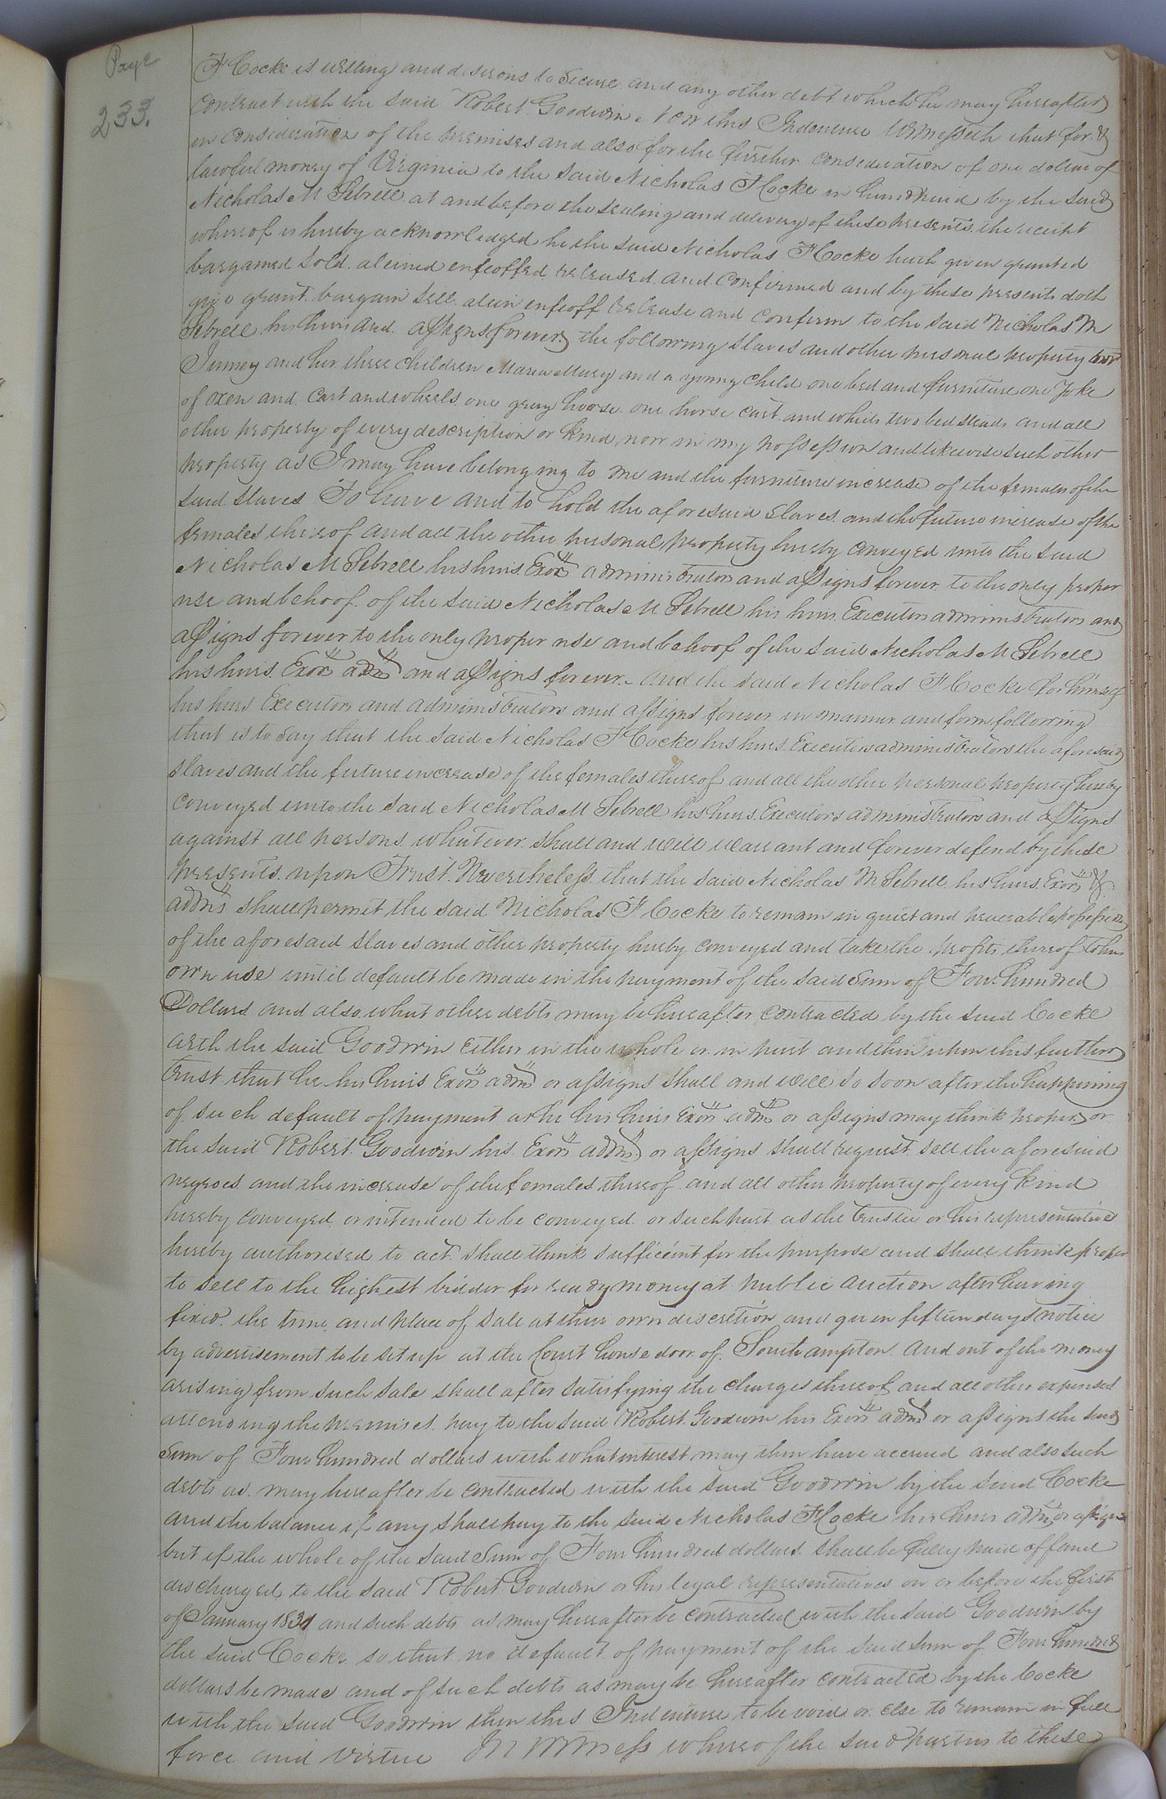 Page
233.
F Cocke is willing and desirous to secure and any other debt which he may hereafter
contract with the said Robert Goodwin Now this Indenture Witnesseth that for &
in consideration of the premises and also for the further consideration of one dollar of
lawful money of Virginia to the said Nicholas F Cocke in hand paid by the said
Nicholas M Sebrell at and before the sealing and delivery of these presents the receipt
whereof is hereby acknowledged he the said Nicholas F Cocke hath given granted
bargained sold aliened enfeoffed released and confirmed and by these presents doth
give grant bargain sell alien enfeoff release and confirm to the said Nicholas M
Sebrell his heirs and assigns forever the following slaves and other personal property
Jenney and her three children Maria Mary and a young child one bed and furniture one Yoke
of oxen and cart and wheels one gray horse one horse cart and wheels two bed steads and all
other property of every description or kind now in my possession and likewise such other
property as I may have belonging to me and the furniture increase of the females of the
said slaves To have and to hold the aforesaid slaves and the future increase of the
females thereof and all the other personal property hereby conveyed unto the said
Nicholas M Sebrell his heirs Exors administrators and assigns forever to the only proper
use and behoof of the said Nicholas M Sebrell his heirs Executors administrators and
assigns forever to the only proper use and behoof of the said Nicholas M Sebrell
his heirs Exors adms and assigns forever and the said Nicholas F Cocke for himself
his heirs Executors and administrators and assigns forever in manner and form following
that is to say that the said Nicholas F Cocke his heirs Executors administrators the aforesaid
slaves and the future increase of the females thereof and all the other personal property hereby
conveyed unto the said Nicholas M Sebrell his heirs Executors administrators and assigns
against all persons whatever shall and will warrant and forever defend by these
presents upon Trust Nevertheless that the said Nicholas M Sebrell his heirs Exors &
admrs shall permit the said Nicholas F Cocke to remain in quiet and peaceable possession
of the aforesaid slaves and other property hereby conveyed and take the profits thereof to his
own use until default be made in the payment of the said sum of Four hundred
Dollars and also what other debts may be hereafter contracted by the said Cocke
with the said Goodwin either in the whole or in part and then upon this further
trust that he his heirs Exors adms or assigns shall and will so soon after the happening
of such default of payment as he his heirs Exors adms or assigns may think proper or
the said Robert Goodwin his Exors adms or assigns shall request sell the aforesaid
negroes and the increase of the females thereof and all other property of every kind
hereby conveyed or intended to be conveyed or such part as the trustee or his representative
hereby authorised to act shall think sufficient for the purpose and shall think proper
to sell to the highest bidder for ready money at public auction after having
fixed the time and place of sale at their own discretion and given fifteen days notice
by advertisement to be set up at the Court house door of Southampton and out of the money
arising from such sale shall after satisfying the charges thereof and all other expenses
attending the premises pay to the said Robert Goodwin his Exors adms or assigns the said
sum of Four hundred dollars with what interest may then have accrued and also such
debts as may hereafter be contracted with the said Goodwin by the said Cocke
and the balance if any shall pay to the said Nicholas F Cocke his heirs adms or assigns
but if the whole of the said sum of Four hundred dollars shall be fully paid off and
discharged to the said Robert Goodwin or his legal representatives on or before the first
of January 1831 and such debts as may hereafter be contracted with the said Goodwin by
the said Cocke so that no default of payment of the said sum of Four hundred
dollars be made and of such debts as may be hereafter contracted by the Cocke
with the said Goodwin then this Indenture to be void or else to remain in full
force and virtue In Witness whereof the said parties to these